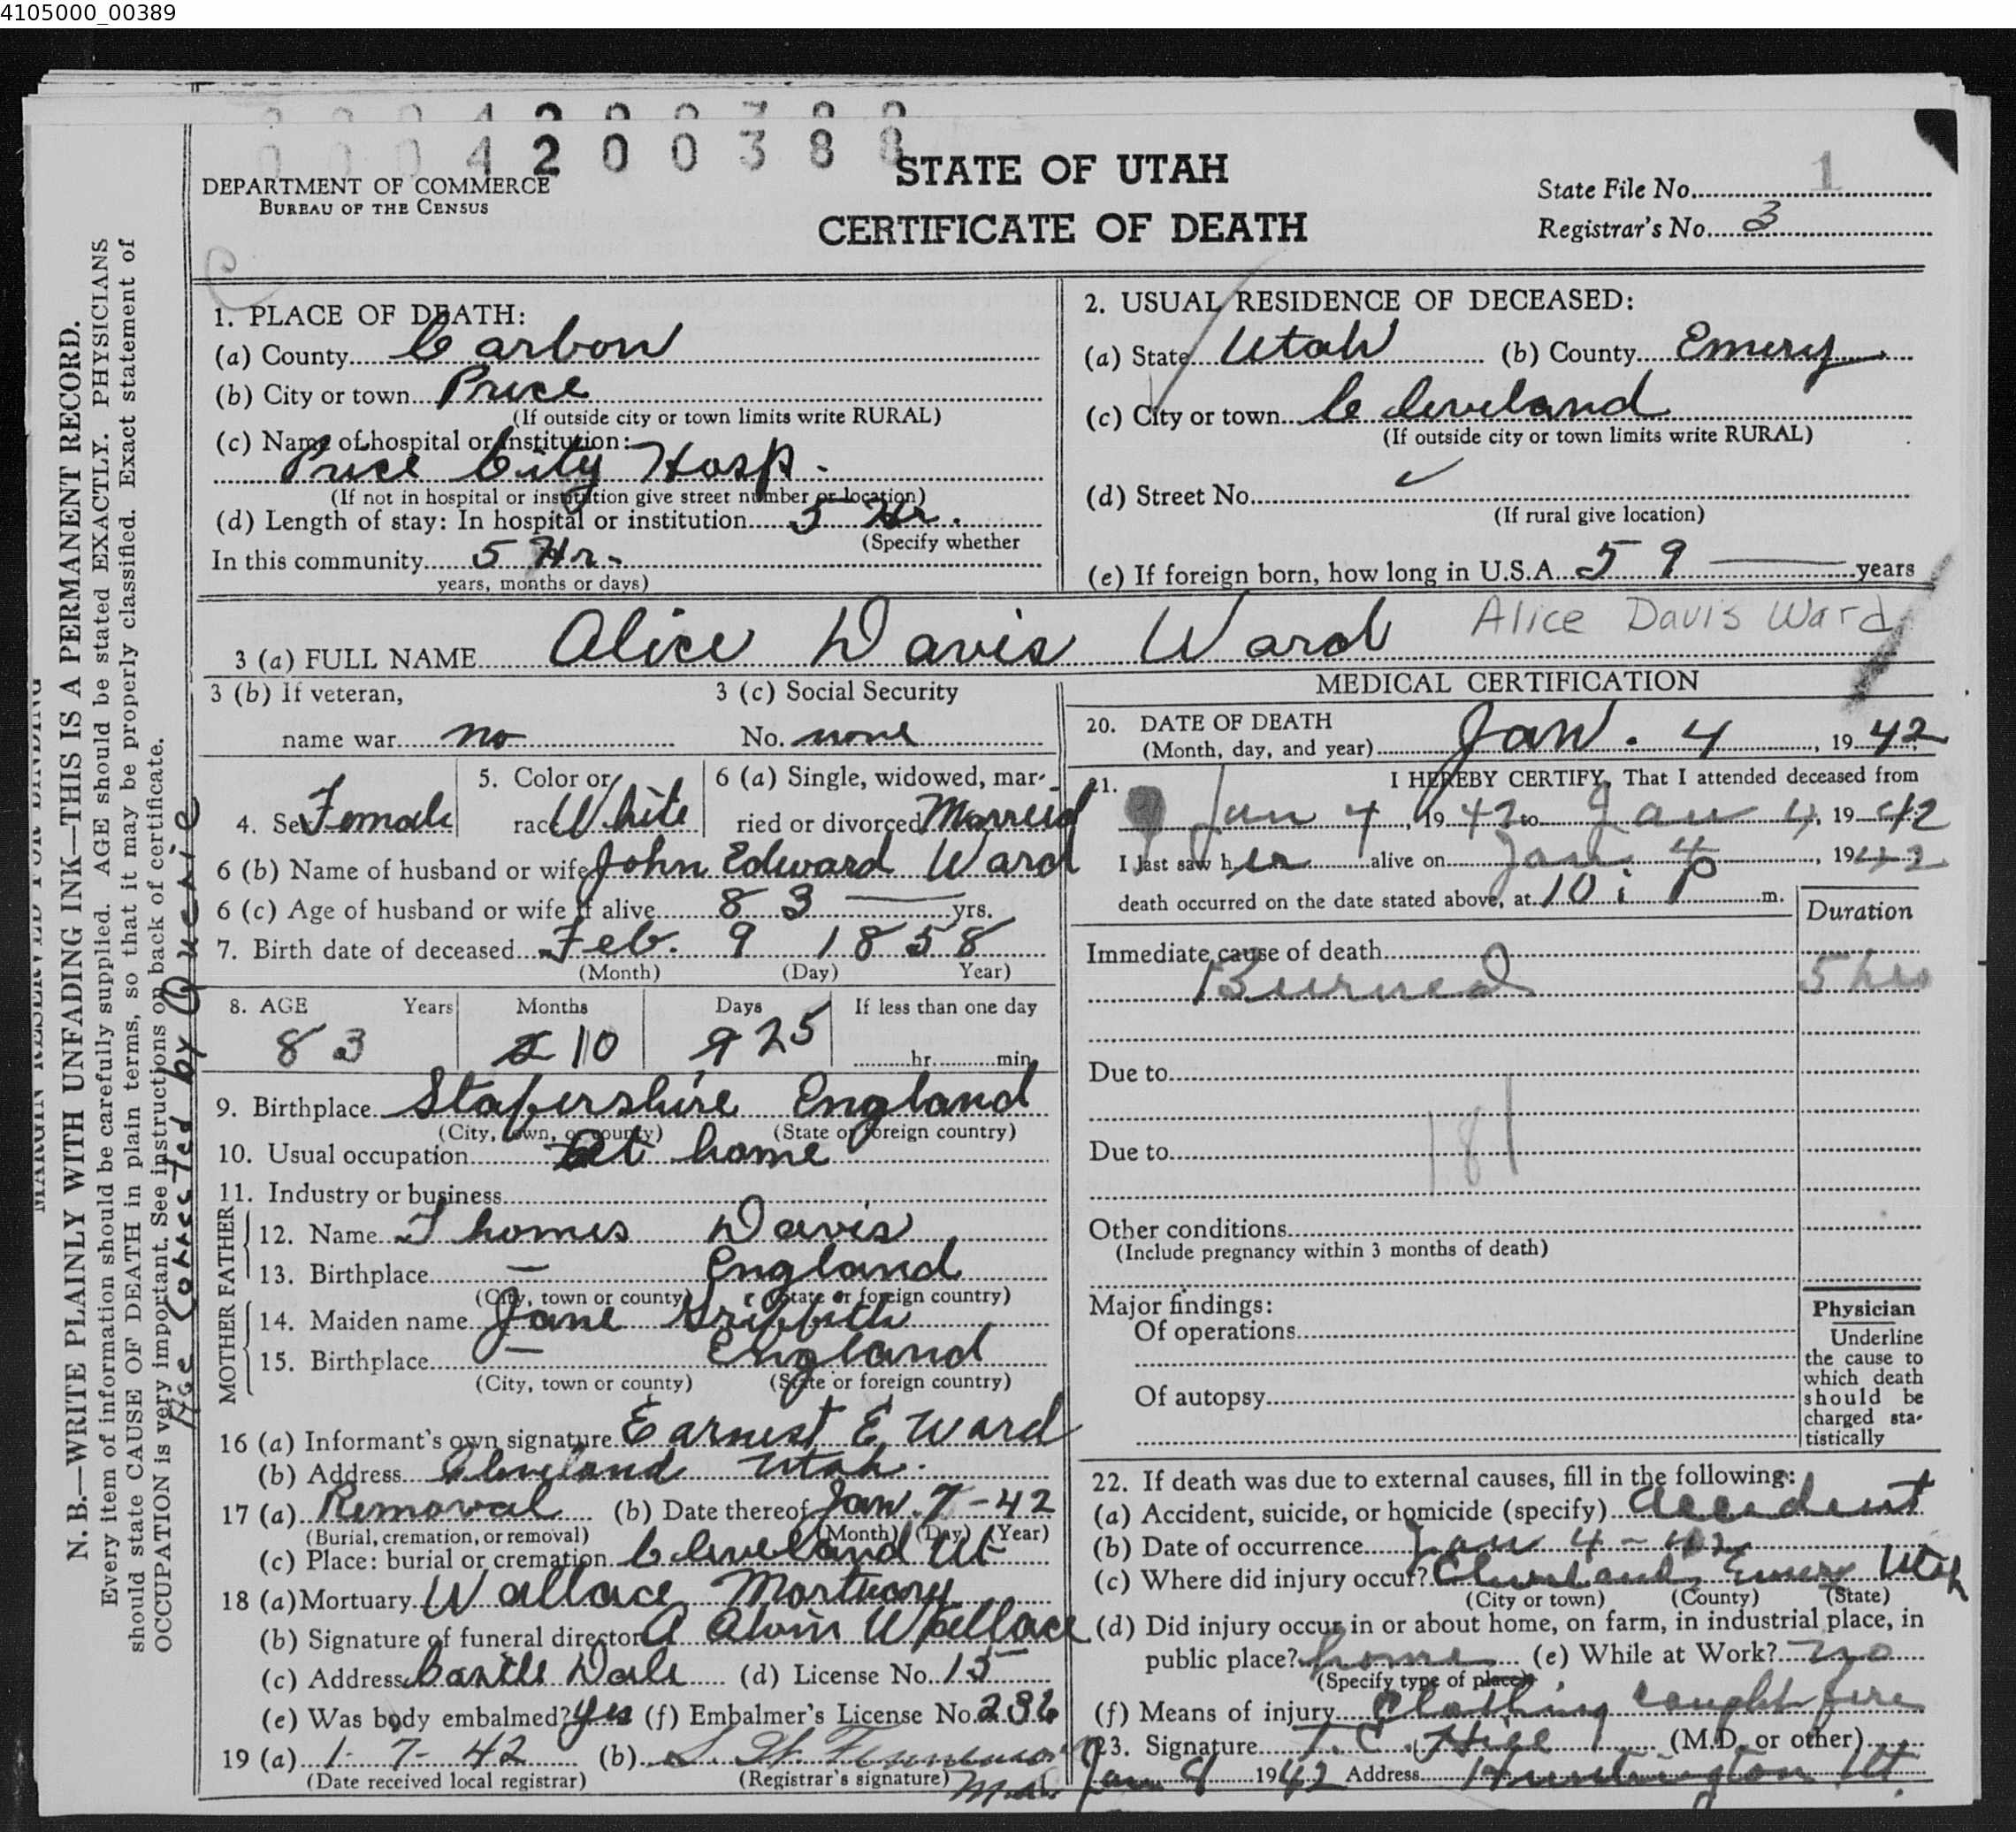 4105000_00389
0 0 0 4 2 0 0 3 8 8
DEPARTMENT OF COMMERCE
BUREAU OF THE CENSUS
STATE OF UTAH
CERTIFICATE OF DEATH
State File No. 1
Registrar's No. 3
MARGIN RESERVED FOR BINDING
N. B.—WRITE PLAINLY WITH UNFADING INK—THIS IS A PERMANENT RECORD.
Every item of information should be carefully supplied. AGE should be stated EXACTLY. PHYSICIANS
should state CAUSE OF DEATH in plain terms, so that it may be properly classified. Exact statement of
OCCUPATION is very important. See instructions on back of certificate.
Age Corrected by
1. PLACE OF DEATH:
(a) County Carbon
(b) City or town Price
(If outside city or town limits write RURAL)
(c) Name of hospital or institution:
Price City Hosp.
(If not in hospital or institution give street number or location)
(d) Length of stay: In hospital or institution 5 Hr.
(Specify whether
In this community 5 Hr.
years, months or days)
2. USUAL RESIDENCE OF DECEASED:
(a) State Utah (b) County Emery
(c) City or town Cleveland
(If outside city or town limits write RURAL)
(d) Street No.
(If rural give location)
(e) If foreign born, how long in U.S.A. 59 years
3 (a) FULL NAME Alice Davis Ward Alice Davis Ward
3 (b) If veteran,
name war no
3 (c) Social Security
No. none
4. Sex Female
5. Color or
race White
6 (a) Single, widowed, mar-
ried or divorced Married
6 (b) Name of husband or wife John Edward Ward
6 (c) Age of husband or wife if alive 83 yrs.
7. Birth date of deceased Feb. 9 1858
(Month) (Day) Year)
8. AGE Years Months Days If less than one day
83 10 25 hr. min.
9. Birthplace Stafershire England
(City, town, or county) (State or foreign country)
10. Usual occupation At home
11. Industry or business
FATHER
12. Name Thomis Davis
13. Birthplace — England
(City, town or county) (State or foreign country)
MOTHER
14. Maiden name Jane Griffith
15. Birthplace — England
(City, town or county) (State or foreign country)
16 (a) Informant's own signature Earnest E Ward
(b) Address Cleveland Utah.
17 (a) Removal (b) Date thereof Jan. 7-42
(Burial, cremation, or removal) (Month) (Day) (Year)
(c) Place: burial or cremation Cleveland Ut
18 (a) Mortuary Wallace Mortuary
(b) Signature of funeral director A Alvin Wallace
(c) Address Castle Dale (d) License No. 15
(e) Was body embalmed? yes (f) Embalmer's License No. 236
19 (a) 1-7-42 (b)
(Date received local registrar) (Registrar's signature)
MEDICAL CERTIFICATION
20. DATE OF DEATH
(Month, day, and year) Jan. 4, 1942
21. I HEREBY CERTIFY, That I attended deceased from
Jan 4, 1942 to Jan 4, 1942
I last saw her alive on Jan 4, 1942
death occurred on the date stated above, at 10: P m.
Duration
Immediate cause of death
Burned 5 hrs
Due to
181
Due to
Other conditions
(Include pregnancy within 3 months of death)
Major findings:
Of operations
Of autopsy
Physician
Underline
the cause to
which death
should be
charged sta-
tistically
22. If death was due to external causes, fill in the following:
(a) Accident, suicide, or homicide (specify) accident
(b) Date of occurrence Jan 4-42
(c) Where did injury occur? Cleveland, Emery Utah
(City or town) (County) (State)
(d) Did injury occur in or about home, on farm, in industrial place, in
public place? home (e) While at Work? no
(Specify type of place)
(f) Means of injury Clothing caught fire
23. Signature T. C. Hill (M.D. or other)
Jan 8 1942 Address Huntington Ut.